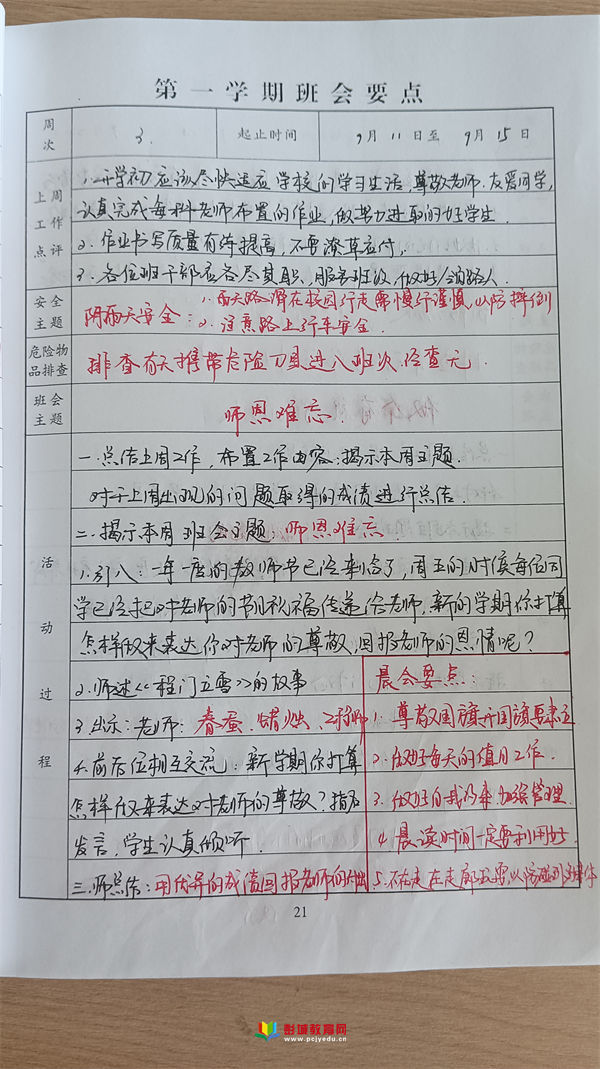 第一学期班会要点
周次 3. 起止时间 9月11日至 9月15日
上周工作点评
1.开学初应该尽快适应学校的学习生活,尊敬老师.友爱同学,
认真完成每科老师布置的作业,做努力进取的好学生.
2.作业书写质量有待提高,不要潦草应付,
3.各位班干部应各尽其职.服务班级,做好领路人.
安全主题
阴雨天安全:1.雨天路滑在校园行走需慢行谨慎,以防摔倒
2.注意路上行车安全.
危险物品排查
排查有无携带危险刀具进入班次.经查无.
班会主题
师恩难忘.
活动过程
一.总结上周工作,布置工作内容:揭示本周主题.
对于上周出现的问题取得的成绩进行总结.
二.揭示本周班会主题:师恩难忘
1.引入:一年一度的教师节已经来临了,周五的时候每位同
学已经把对老师的节日祝福传递给老师,新的学期你打算
怎样做来表达你对老师的尊敬,回报老师的恩情呢?
2.师述《程门立雪》的故事
3.出示:老师:春蚕、蜡烛、工程师
4.前后位相互交流:新学期你打算
怎样做来表达对老师的尊敬?指名
发言,学生认真倾听.
三.师总结:用优异的成绩回报老师的付出
晨会要点:
1.尊敬国旗升国旗要肃立
2.做好每天的值日工作.
3.做好自我约束.加强管理.
4.晨读时间一定要利用好.
5.不在走在走廊玩耍,以防碰到
21
彭城教育网
www.pcjyedu.cn